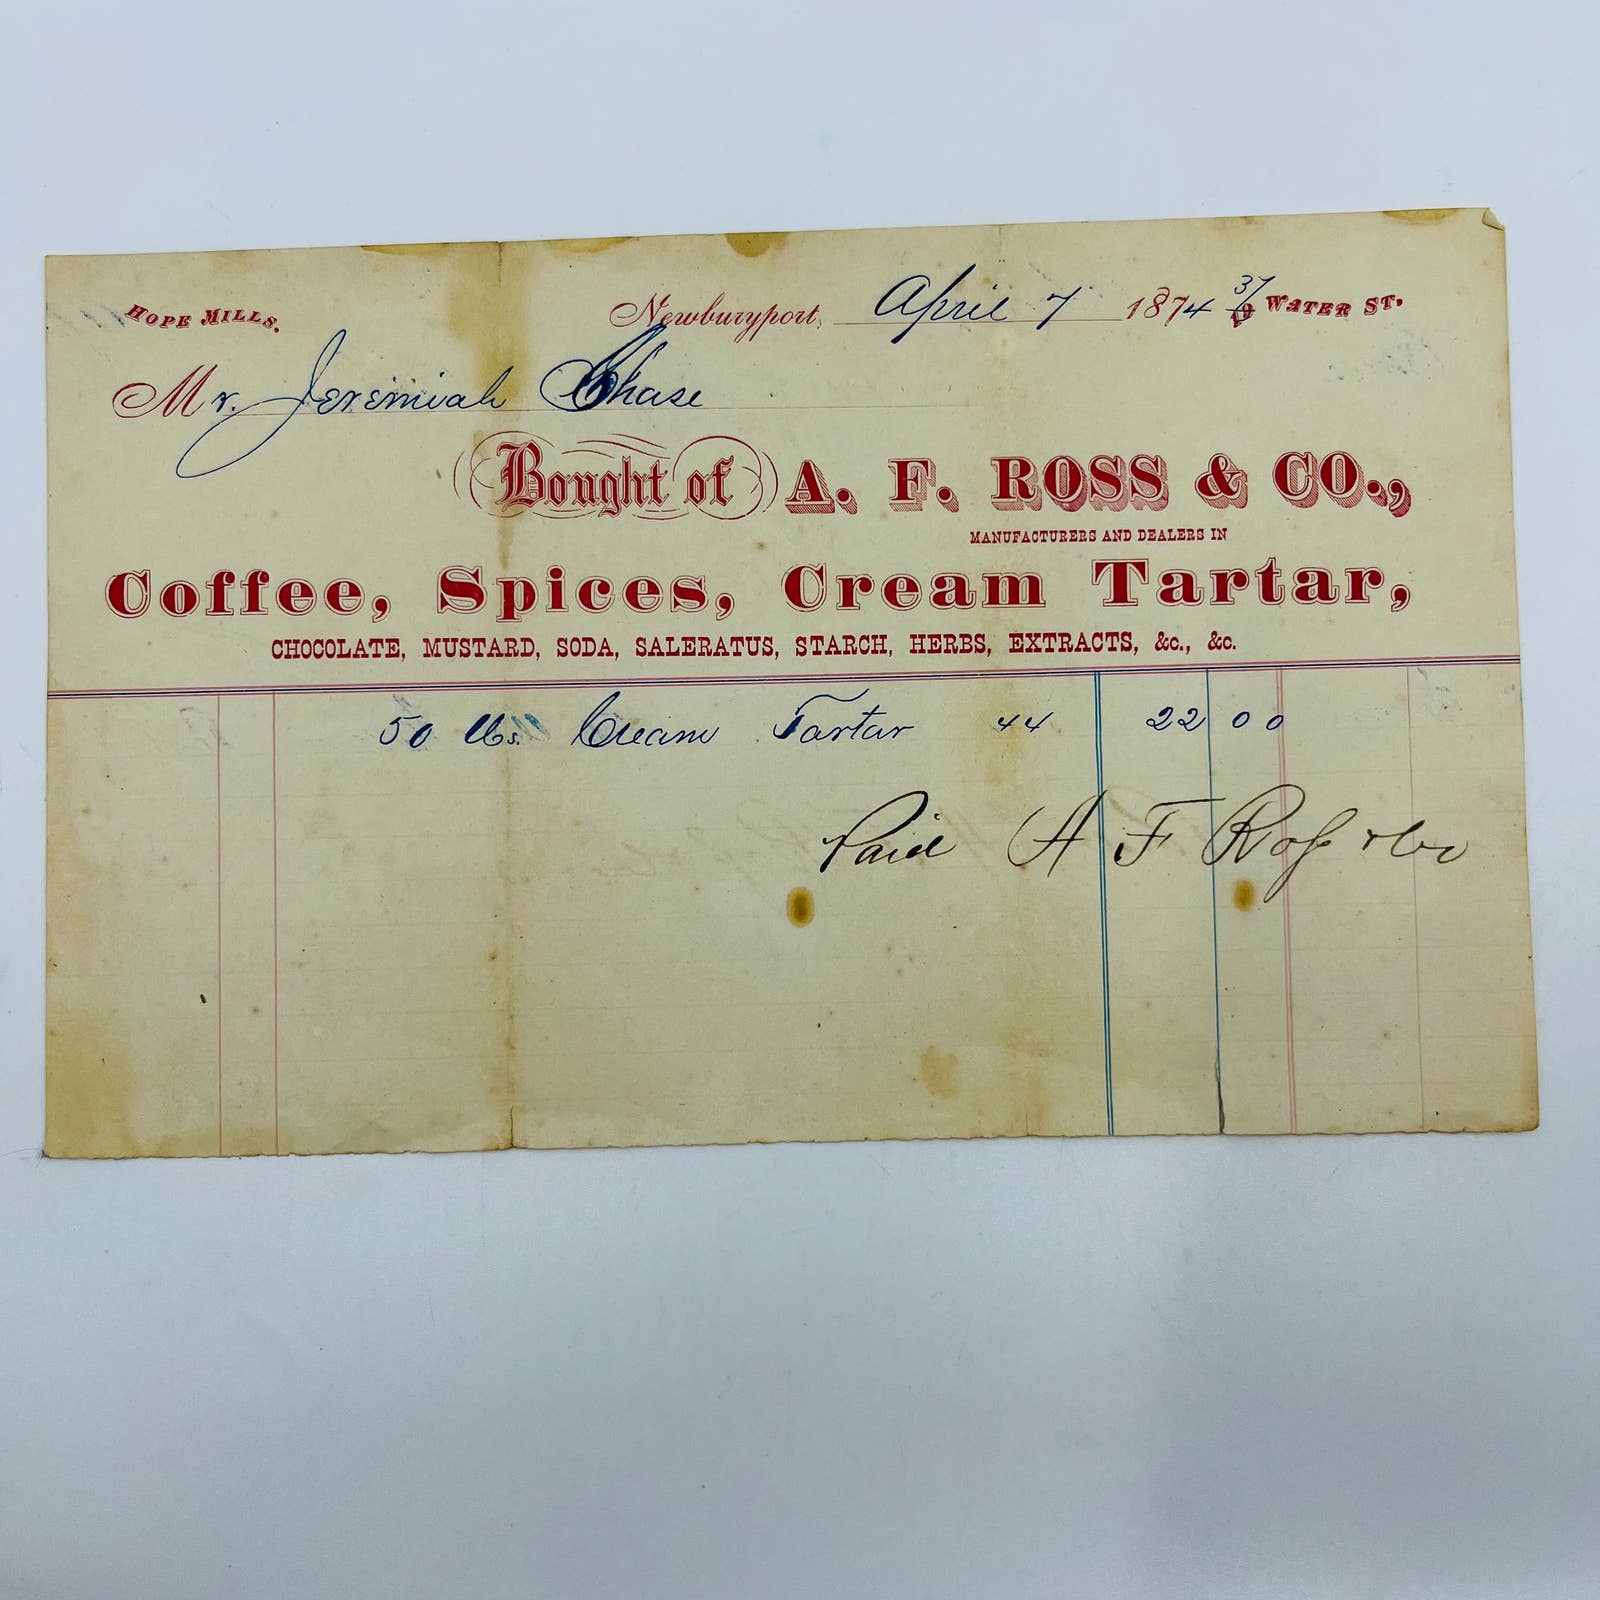 HOPE MILLS.
Newburyport, April 7 1874 37 WATER ST.
Mr. Jeremiah Chase
Bought of A. F. ROSS & CO.,
MANUFACTURERS AND DEALERS IN
Coffee, Spices, Cream Tartar,
CHOCOLATE, MUSTARD, SODA, SALERATUS, STARCH, HERBS, EXTRACTS, &c., &c.
50 lbs. Cream Tartar 44 22 00
Paid A F Ross & Co